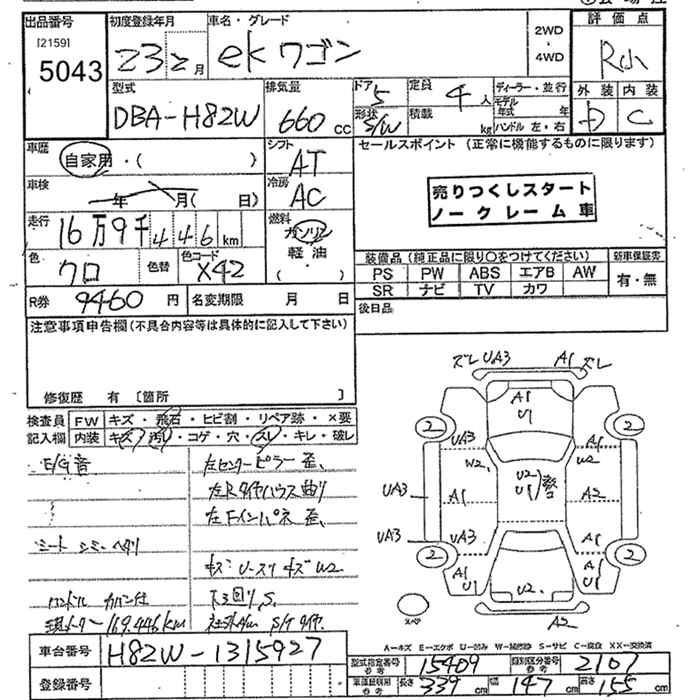 出品番号 初度登録年月 車名・グレード 2WD・4WD 評価点
[2159]
5043
23 2月 eKワゴン R小
外装 内装
D C
型式 排気量 ドア 定員 ディーラー・並行
DBA-H82W 660cc 5 4人
形状 積載 モデル年式 年
S/W kg ハンドル 左・右
車歴 シフト セールスポイント (正常に機能するものに限ります)
自家用・( ) AT
車検 冷房
年 月( 日) AC
売りつくしスタート
ノークレーム車
走行 燃料
16万9千446km ガソリン
軽油
( )
色 色替 色コード
クロ X42
装備品 (純正品に限り○をつけてください) 新車保証書
PS PW ABS エアB AW 有・無
SR ナビ TV カワ
R券 9460円 名変期限 月 日
後日品
注意事項申告欄(不具合内容等は具体的に記入して下さい)
修復歴 有 [箇所 ]
検査員 FW キズ・飛石・ヒビ割・リペア跡・×要
記入欄 内装 キズ・汚れ・コゲ・穴・スレ・キレ・破レ
E/G音 左センターピラー歪、
左Rタイヤハウス曲り
左Fインパネ歪、
シート シミ・ヘタリ
キズ U-スリ キズW2
ハンドル カバー付 下回りS.
現メーター169,446km 社外アルミ S/Tタイヤ
車台番号 H82W-1315927
登録番号
ズレ UA3 A1 ズレ
A1
U1
2 2
UA3 A1
W2 U2
U2
U1
UA3 A1 A2
UA3 UA3 A1
2 2
A1 A1
U1 U1
U2
スペア A2
A-キズ E-エクボ U-凹み W-補修跡 S-サビ C-腐食 XX-交換済
型式指定番号 15409 類別区分番号 2107
参考 参考
車体総明細 長さ 339cm 幅 147cm 高さ 155cm
参考